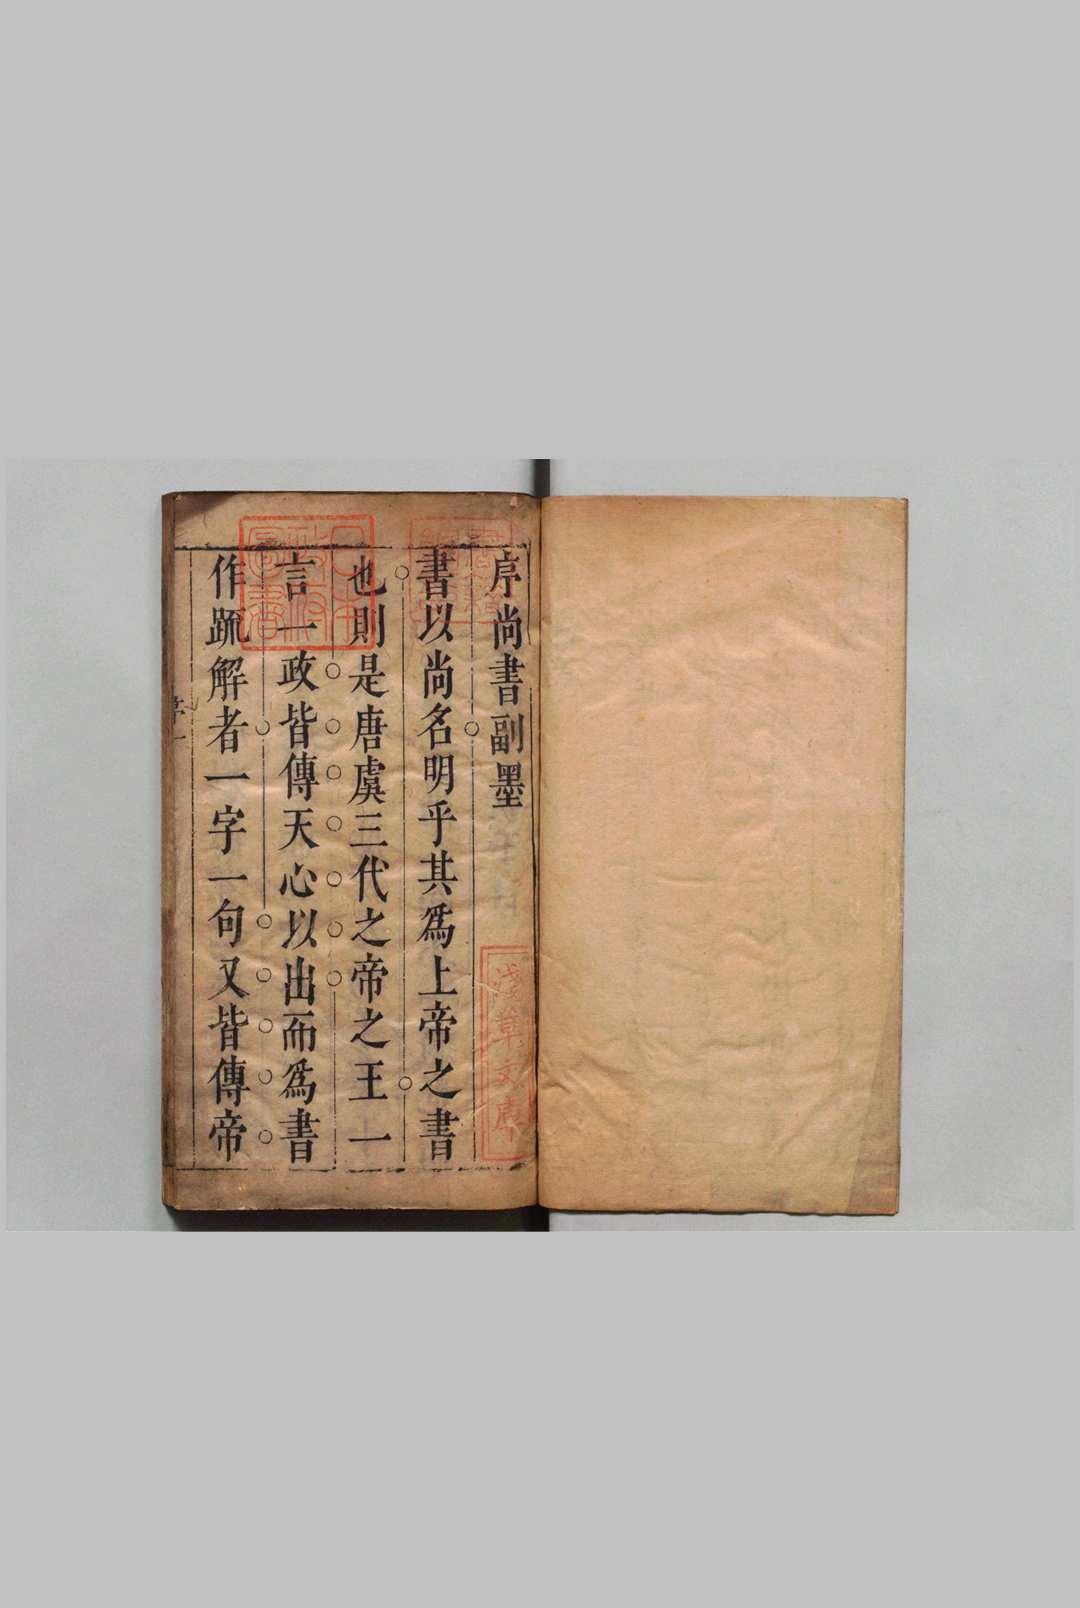 序尚書副墨
書以尚名明乎其爲上帝之書
也則是唐虞三代之帝之王一
言一政皆傳天心以出而爲書
作䟽解者一字一句又皆傳帝
淺草文庫
日本政府圖書
序一